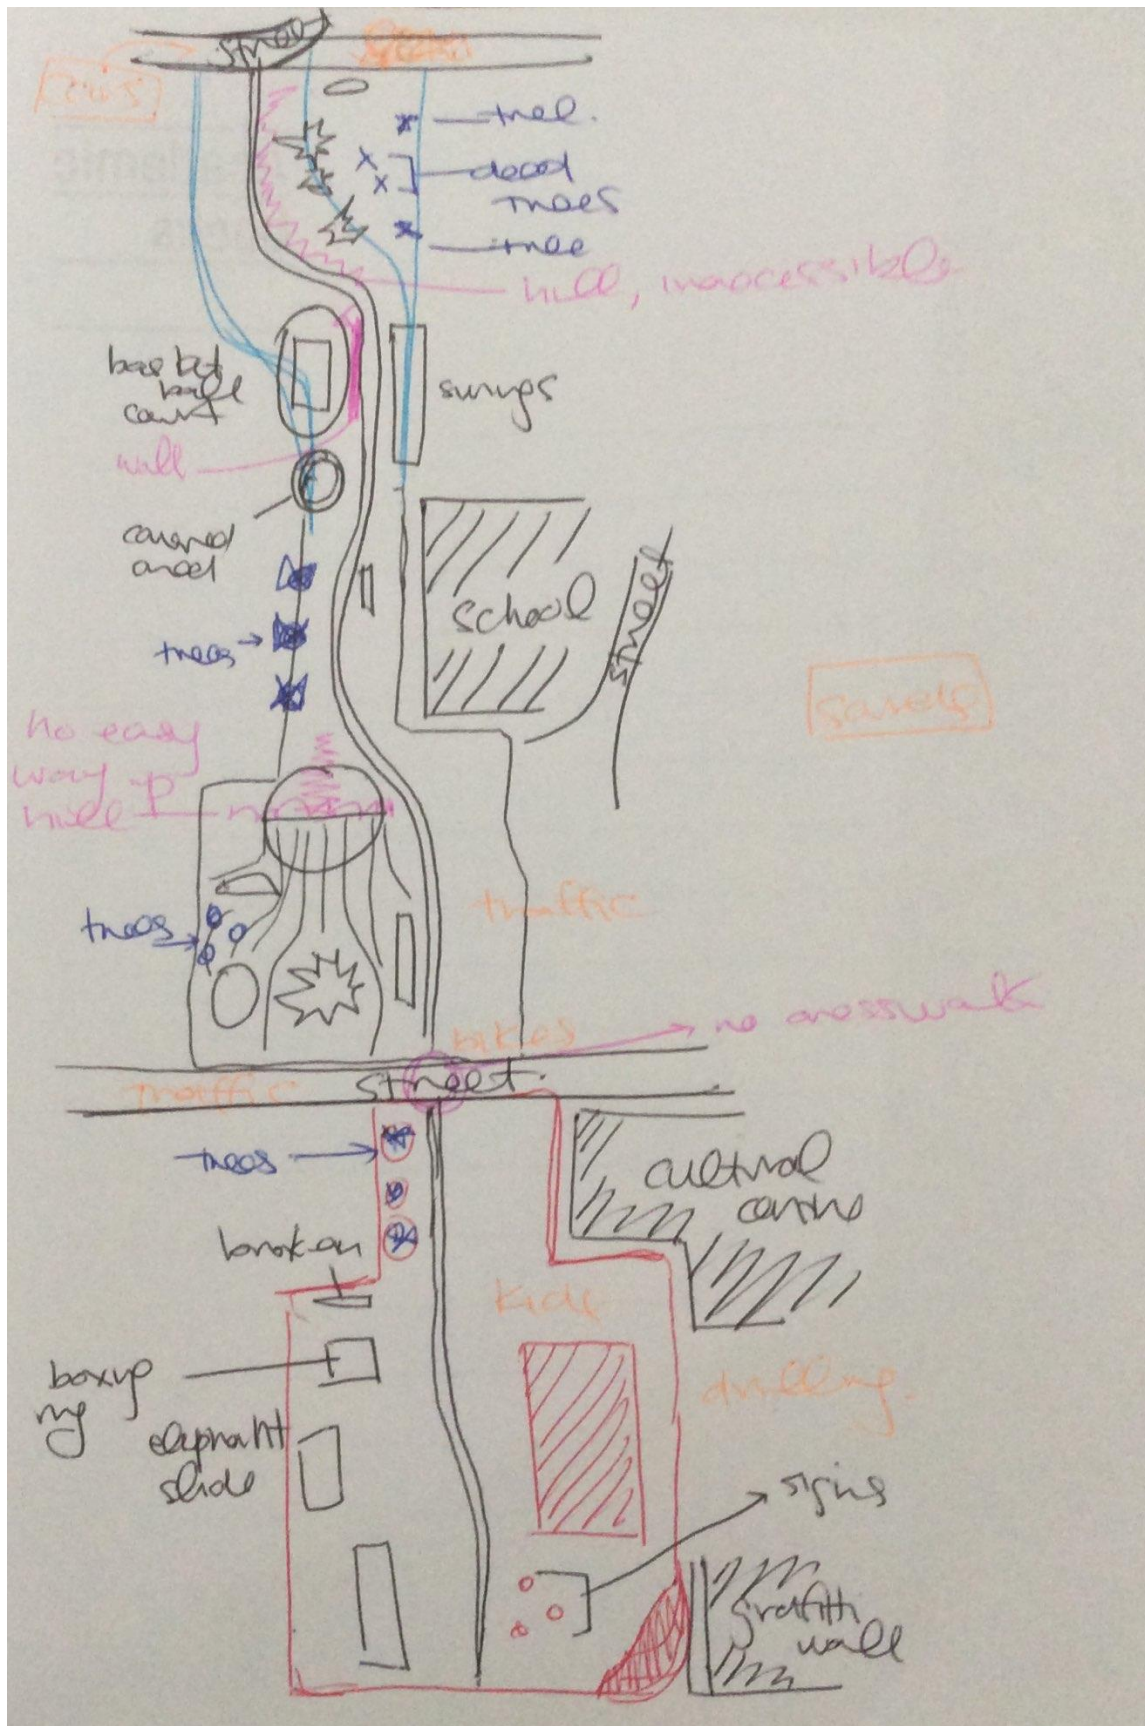 street
cars
tree.
dead
trees
tree
hill, inaccessible
basket
ball
court
swings
wall
covered
area
school
street
trees
sands
no easy
way up
hill
trees
traffic
bikes
no crosswalk
traffic
street.
trees
cultural
centre
broken
kids
boxing
ring
drilling.
elephant
slide
signs
graffiti
wall